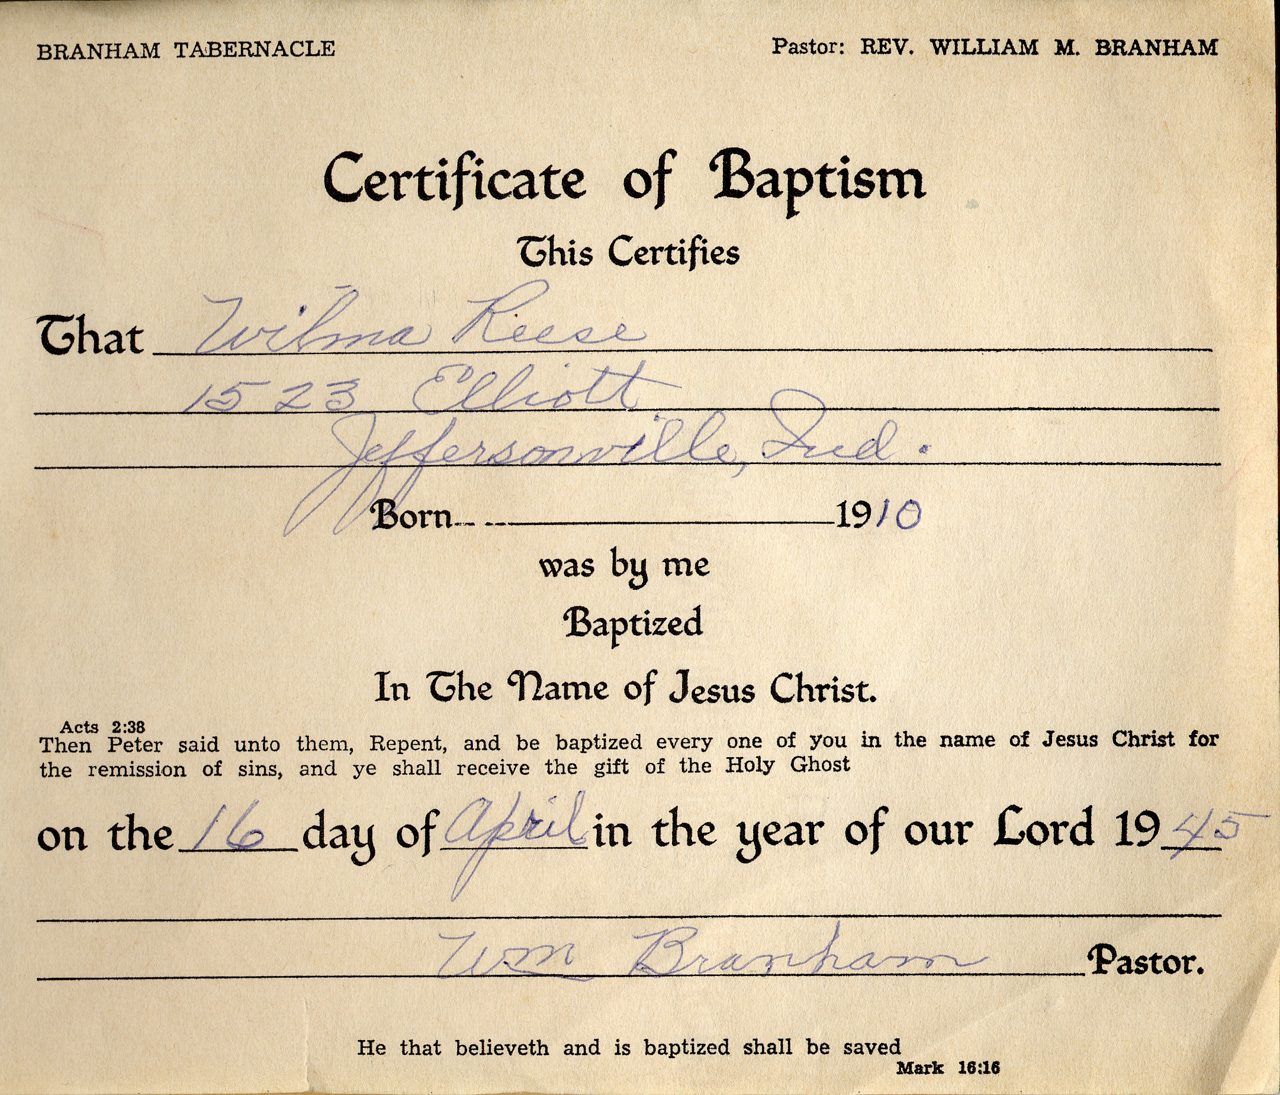 BRANHAM TABERNACLE
Pastor: REV. WILLIAM M. BRANHAM
Certificate of Baptism
This Certifies
That Wilma Reese
1523 Elliott
Jeffersonville, Ind.
Born 1910
was by me
Baptized
In The Name of Jesus Christ.
Acts 2:38
Then Peter said unto them, Repent, and be baptized every one of you in the name of Jesus Christ for
the remission of sins, and ye shall receive the gift of the Holy Ghost
on the 16 day of April in the year of our Lord 1945
Wm Branham Pastor.
He that believeth and is baptized shall be saved
Mark 16:16